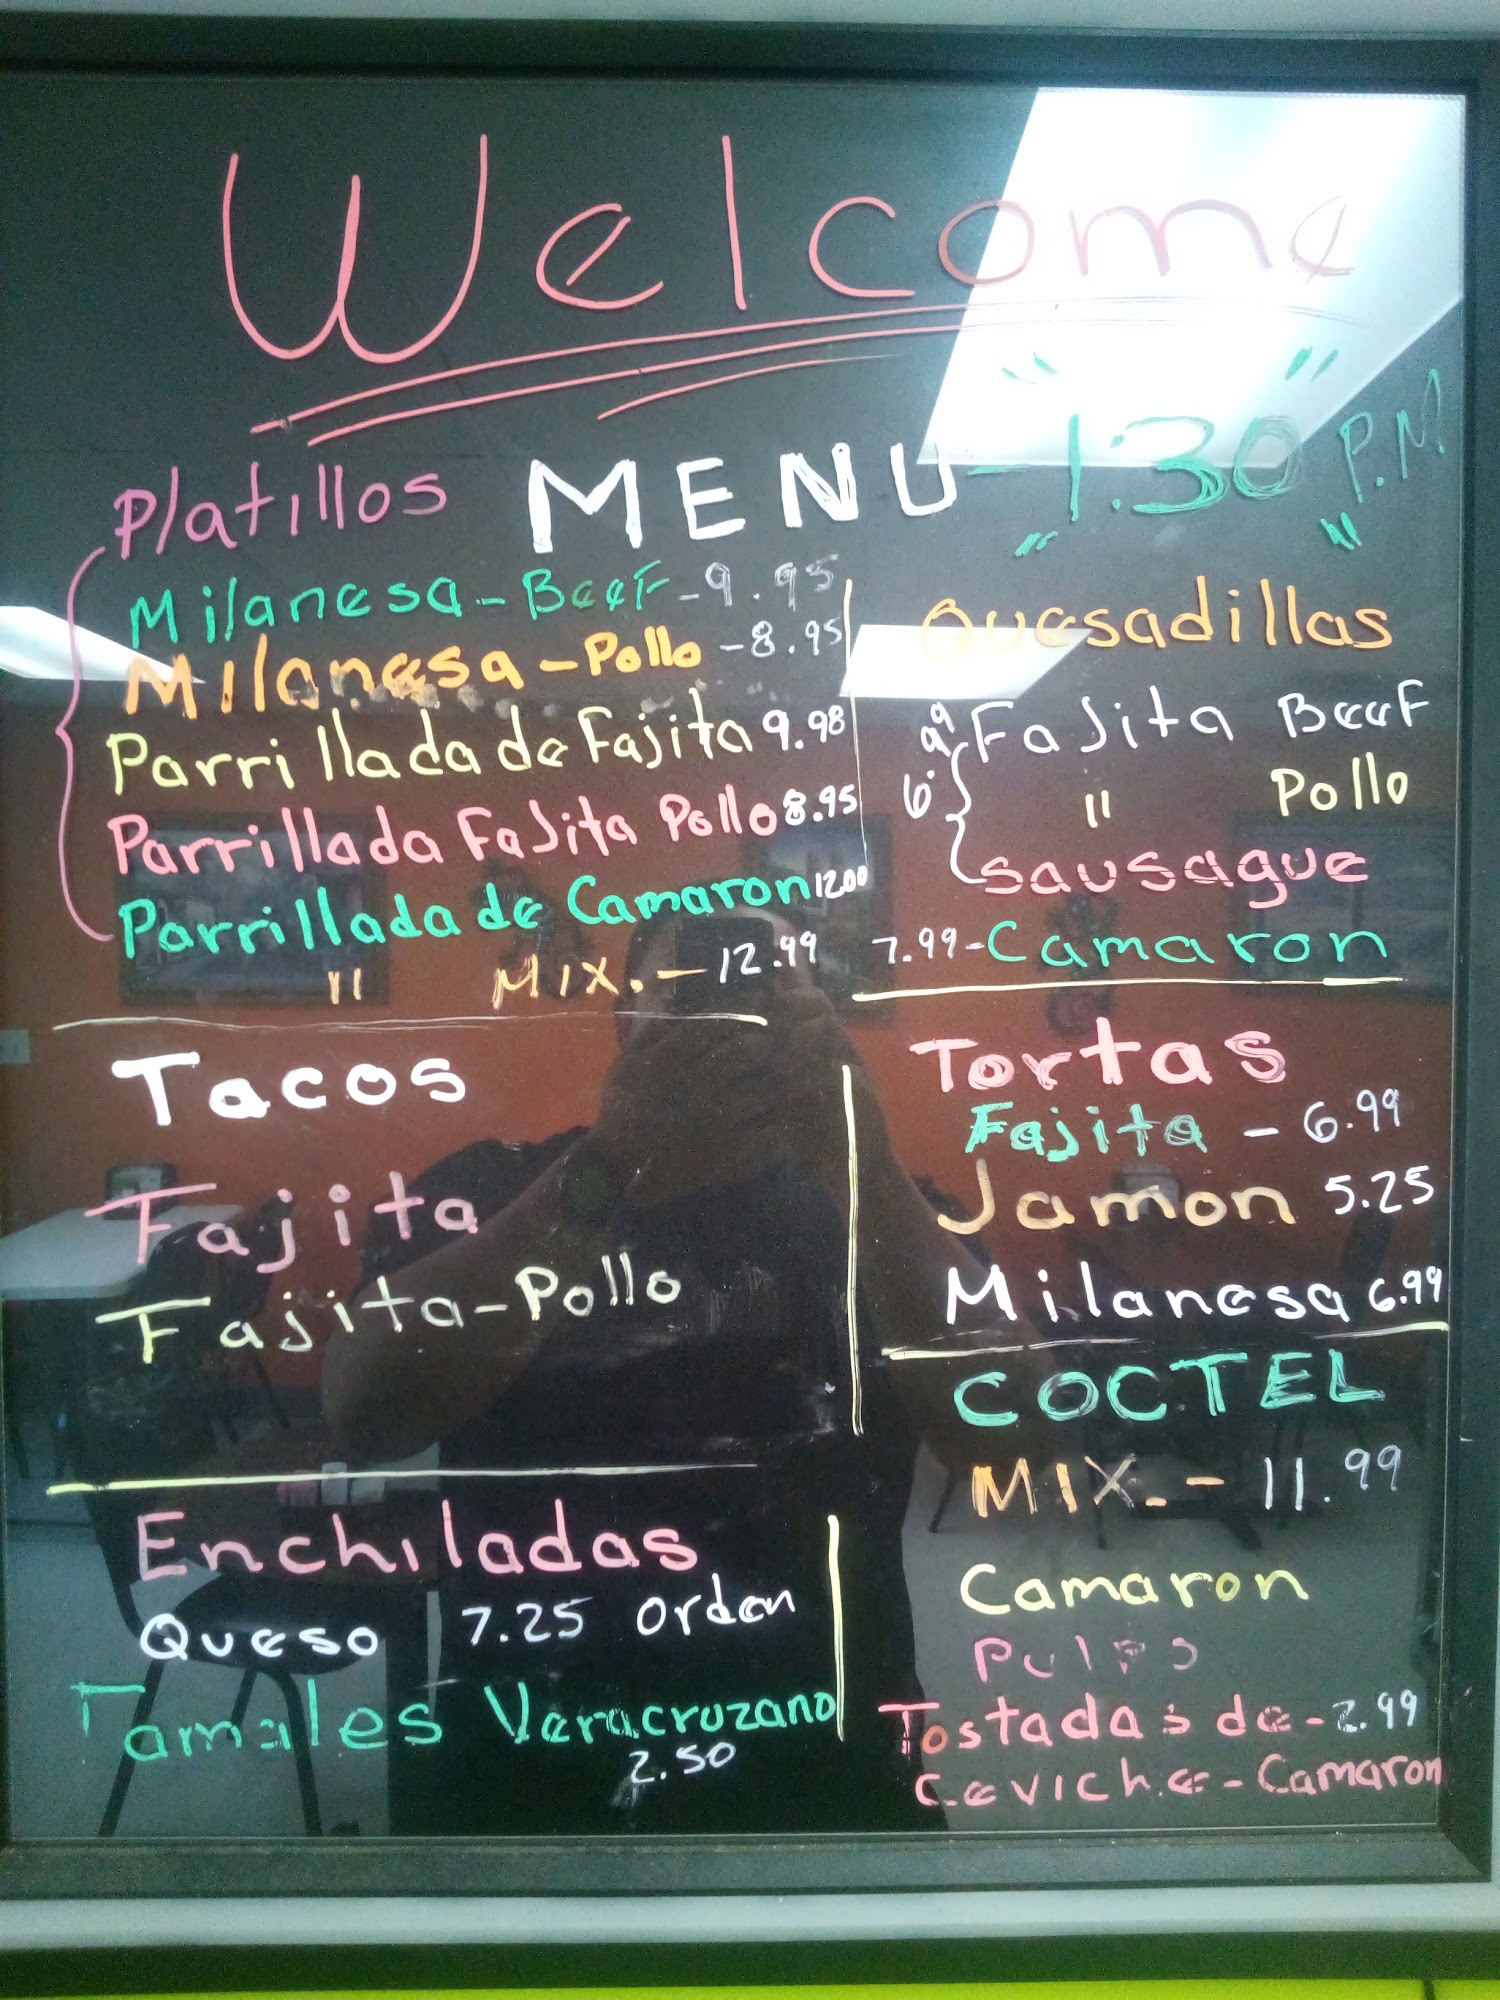 Welcome
MENU - 1:30 P.M
Platillos
Milanesa - Beef - 9.95
Milanesa - Pollo - 8.95
Parrillada de Fajita 9.98
Parrillada Fajita Pollo 8.95
Parrillada de Camaron 12.00
" MIX. - 12.99
Quesadillas
6.99 Fajita Beef
" Pollo
Sausague
7.99 - Camaron
Tacos
Fajita
Fajita - Pollo
Tortas
Fajita - 6.99
Jamon 5.25
Milanesa 6.99
Enchiladas
Queso 7.25 orden
Tamales Veracruzano
2.50
COCTEL
MIX. - 11.99
Camaron
Pulpo
Tostadas de - 2.99
Ceviche - Camaron